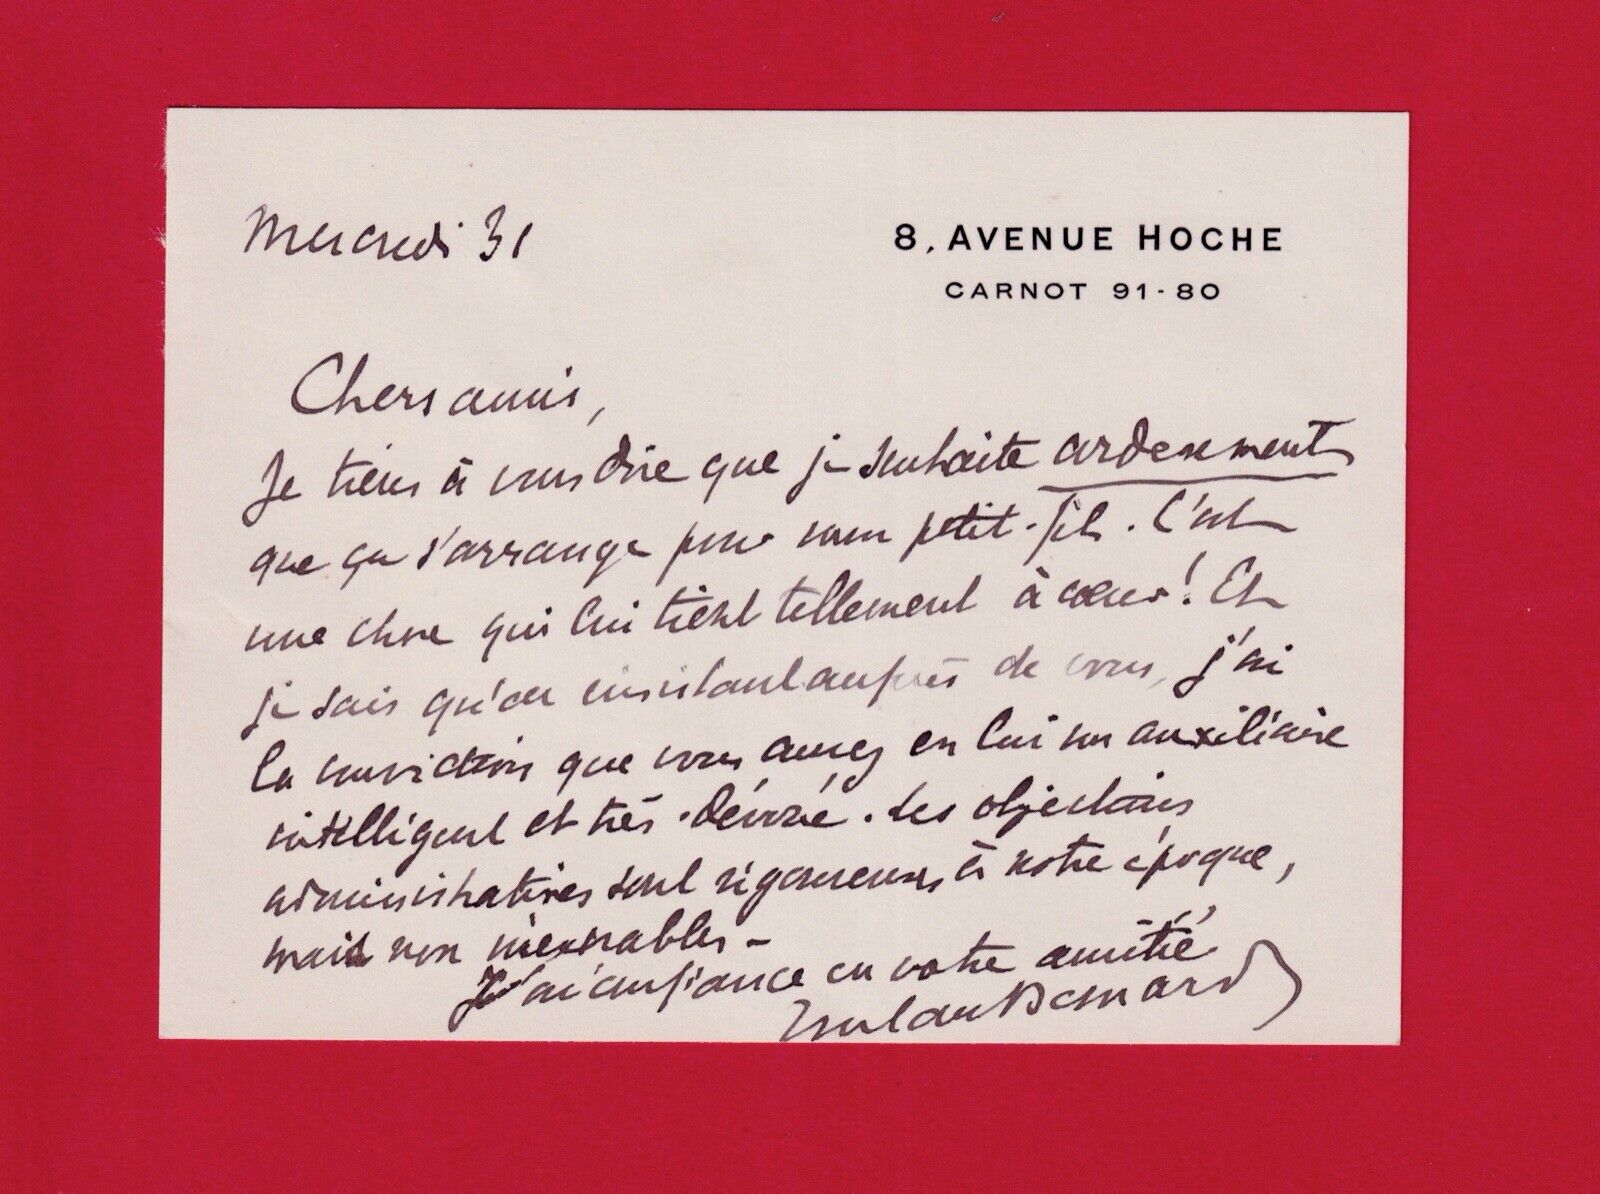 Mercredi 31
8, AVENUE HOCHE
CARNOT 91-80
Chers amis,
Je tiens à vous dire que je souhaite ardemment
que ça s'arrange pour mon petit-fils. C'est
une chose qui lui tient tellement à cœur ! Et
je sais qu'en insistant auprès de vous, j'ai
la conviction que vous aurez en lui un auxiliaire
intelligent et très dévoué. Les objections
administratives sont rigoureuses à notre époque,
mais non inexorables -
J'ai confiance en votre amitié
Tristan Bernard